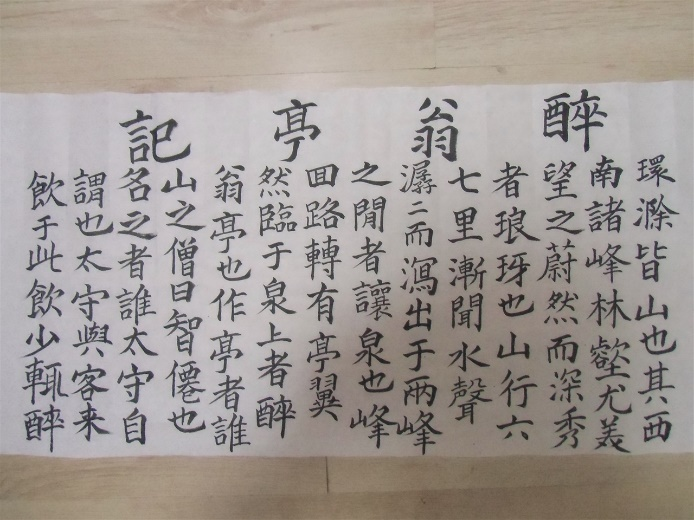 醉翁亭記
環滁皆山也其西
南諸峰林壑尤美
望之蔚然而深秀
者琅玡也山行六
七里漸聞水聲
潺〻而瀉出于兩峰
之間者讓泉也峰
回路轉有亭翼
然臨于泉上者醉
翁亭也作亭者誰
山之僧曰智僊也
名之者誰太守自
謂也太守與客来
飲于此飲少輒醉